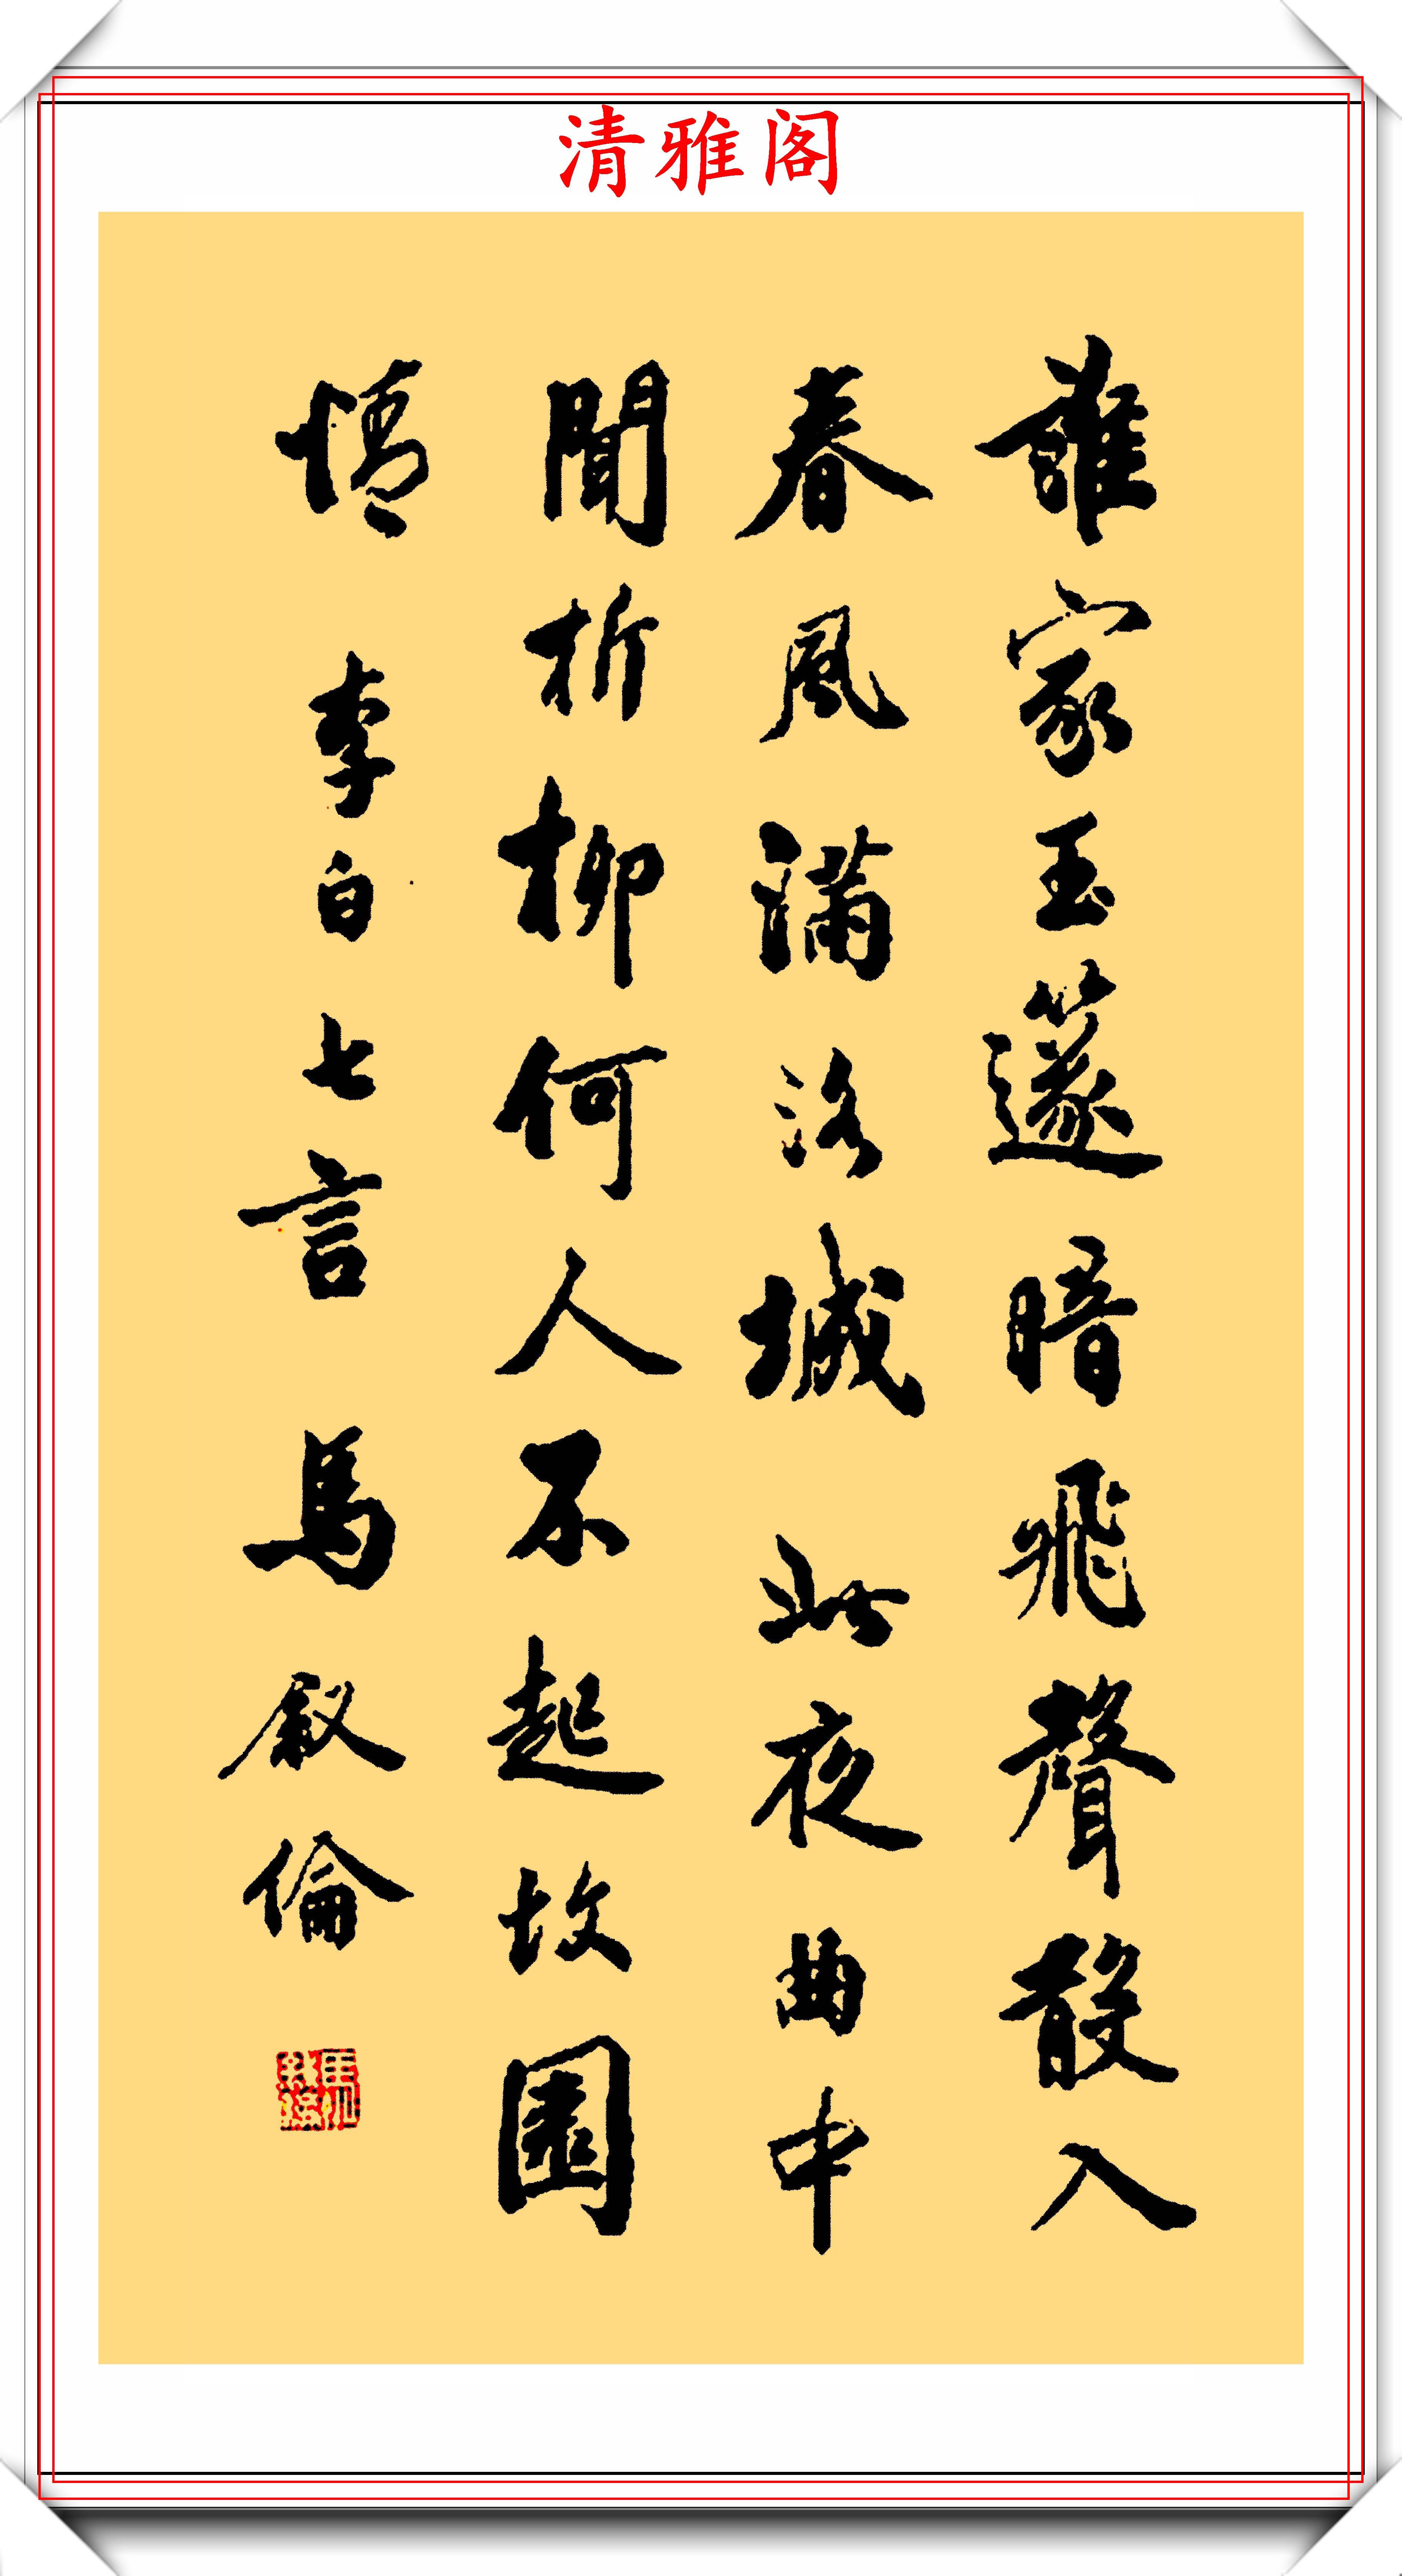 清雅阁
誰家玉篴暗飛聲散入
春風滿洛城此夜曲中
聞折柳何人不起故園
情 李白七言 馬叙倫